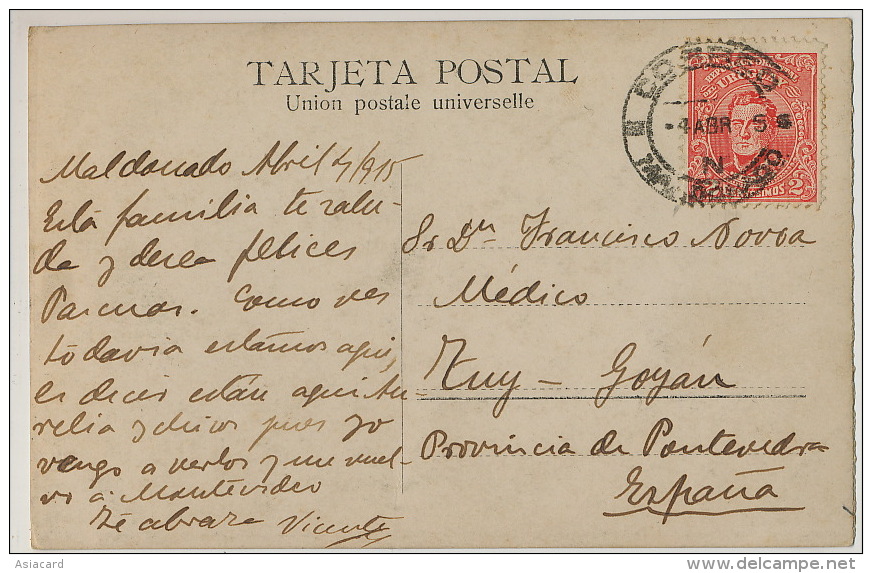 TARJETA POSTAL
Union postale universelle
4 ABR 5
URUGUAY
2 CENTESIMOS 2
Maldonado Abril 4/915
Esta familia te salu-
da y desea felices
Pascuas. Como ves
todavia estamos aqui,
es decir están aqui Au-
relia y chicos pues yo
vengo a verlos y me vuel-
vo a Montevideo
Te abraza Vicente
Sr Dn Francisco Novoa
Médico
Tuy - Goyán
Provincia de Pontevedra
España
Asiacard
delcampe.net